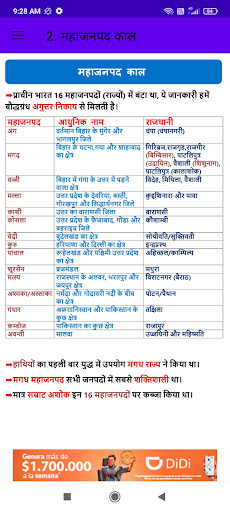 9:28 AM
2. महाजनपद काल
महाजनपद काल
➡प्राचीन भारत 16 महाजनपदों (राज्यों) में बंटा था, ये जानकारी हमें
बौद्धग्रंथ अंगुत्तर निकाय से मिलती है।
महाजनपद आधुनिक नाम राजधानी
अंग वर्तमान बिहार के मुंगेर और चंपा (चंपानगरी)
भागलपुर जिले
मगध बिहार के पटना,गया और शाहाबाद गिरिब्रज,राजगृह,राजगीर
का क्षेत्र (बिम्बिसार), पाटलिपुत्र
(उदायिन), वैशाली (शिशुनाग),
पाटलिपुत्र (कालाशोक)
वज्जी बिहार में गंगा के उत्तर में पड़ने विदेह, मिथिला, वैशाली
वाला क्षेत्र
मल्ला उत्तर प्रदेश के देवरिया, बस्ती, कुशिनारा और पावा
गोरखपुर और सिद्धार्थनगर जिले
काशी उत्तर का वाराणसी जिला वाराणसी
कोसल उत्तर प्रदेश के फैजाबाद, गोंडा और कौशाम्बी
बहराइच जिले
चेदी बुंदेलखंड का क्षेत्र सोथीवती/सुक्तिवती
कुरु हरियाणा और दिल्ली का क्षेत्र इन्द्रप्रस्थ
पांचाल रूहेलखंड और पश्चिमी उत्तर प्रदेश अहिच्छत्र/काम्पिल्य
का क्षेत्र
शूरसेन ब्रजमंडल मथुरा
मत्स्य राजस्थान के अलवर, भरतपुर और विराटनगर (बैराठ)
जयपुर क्षेत्र
अश्मका/अस्साका नर्मदा और गोदावरी नदी के बीच पोटन/पैथान
का क्षेत्र
गंधार अफ़ग़ानिस्तान और पाकिस्तान के तक्षिला
कुछ क्षेत्र
कम्बोज पाकिस्तान का कुछ क्षेत्र राजापुर
अवन्ती मालवा उज्जयिनी और महिष्मति
➡हाथियों का पहली बार युद्ध में उपयोग मगध राज्य ने किया था।
➡मगध महाजनपद सभी जनपदों में सबसे शक्तिशाली था।
➡मात्र सम्राट अशोक इन 16 महाजनपदों पर कब्जा किया था।
Genera más de
$1.700.000
a la semana*
DiDi